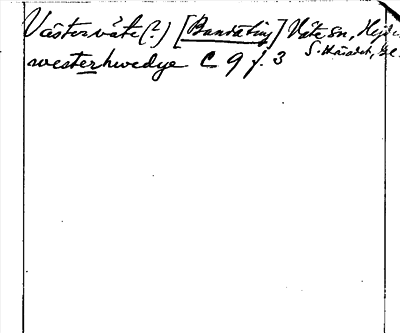 Västerväte(?) [Bandäting] Väte sn, Hejde
S. häradet, Gtl.
westerhwedye C 9 f. 3